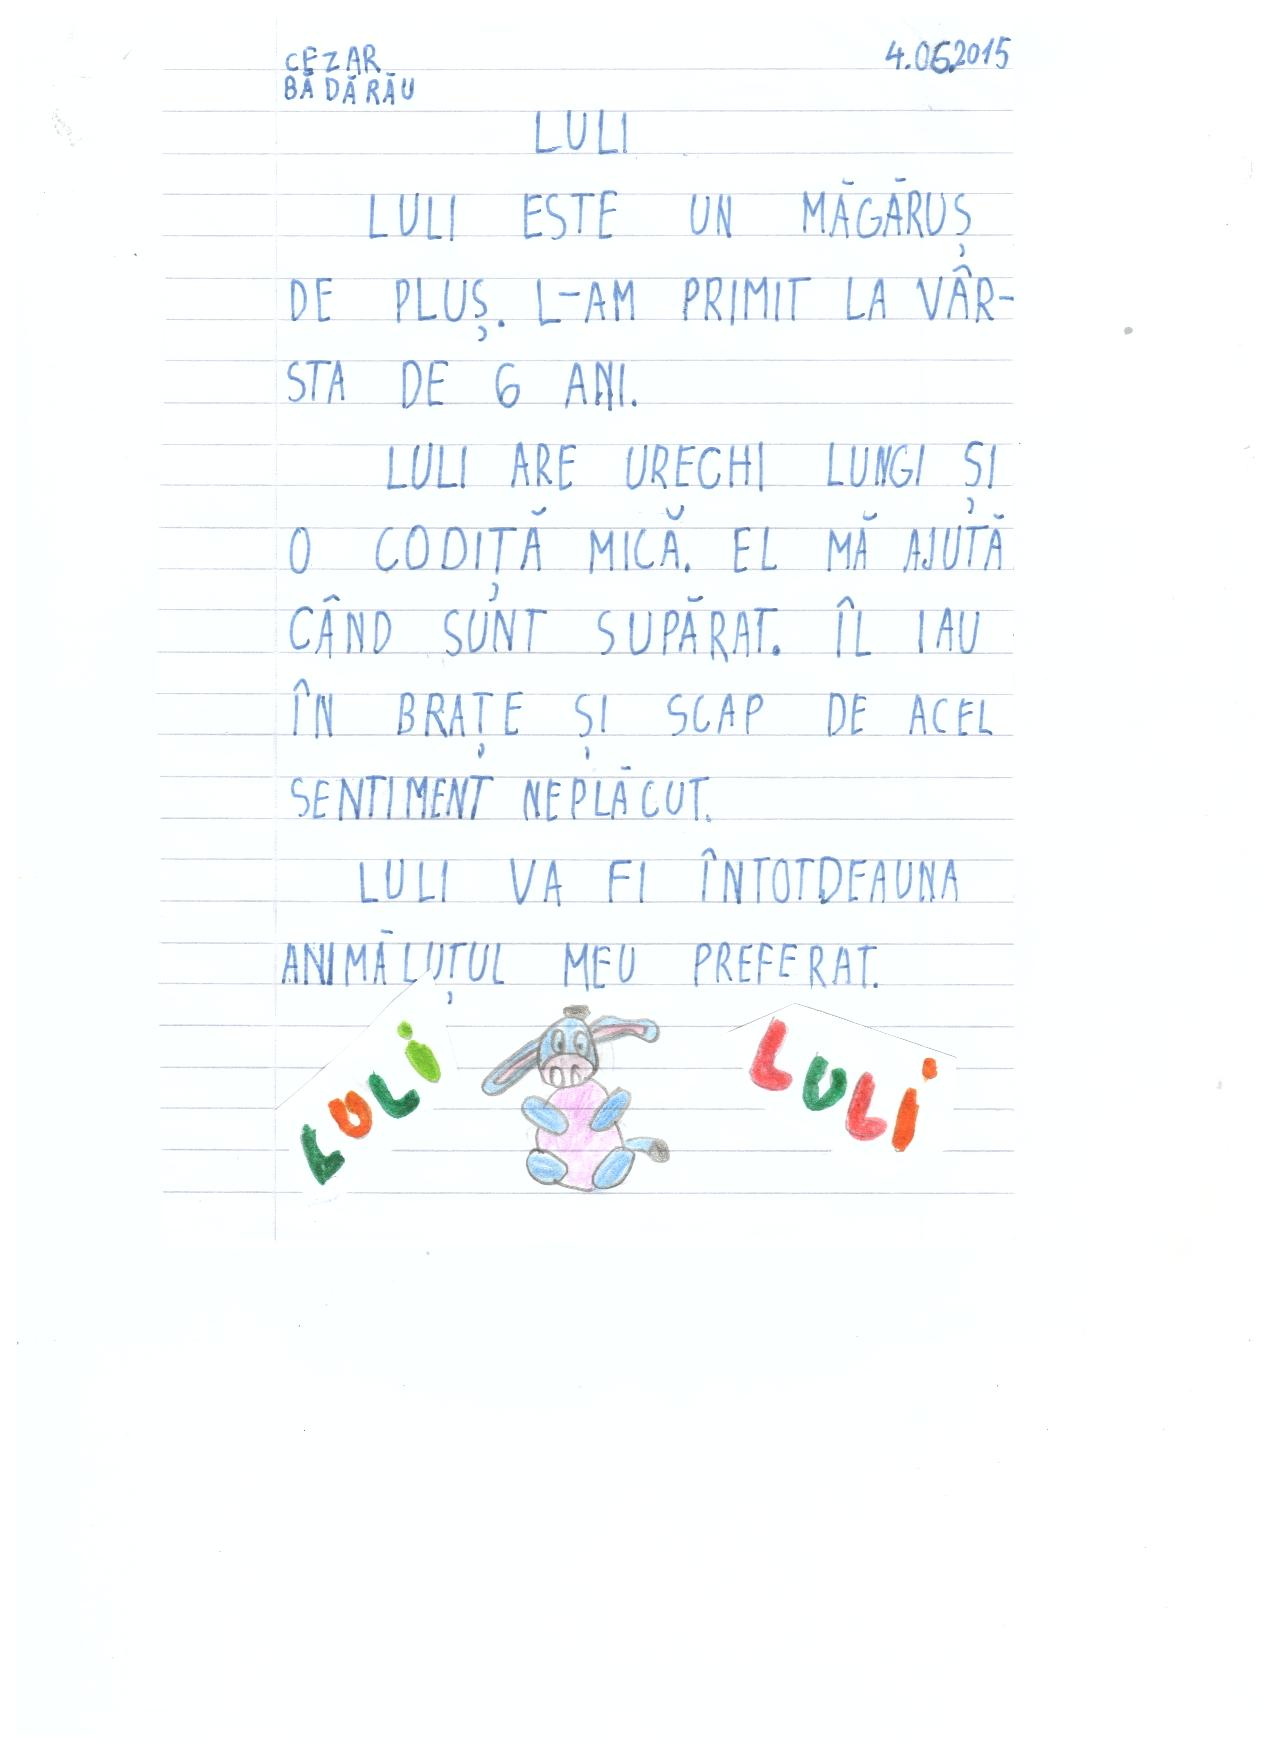 CEZAR
BĂDĂRĂU
4.06.2015
LULI
LULI ESTE UN MĂGĂRUȘ
DE PLUȘ. L-AM PRIMIT LA VÂR-
STA DE 6 ANI.
LULI ARE URECHI LUNGI ȘI
O CODIȚĂ MICĂ. EL MĂ AJUTĂ
CÂND SUNT SUPĂRAT. ÎL IAU
ÎN BRAȚE ȘI SCAP DE ACEL
SENTIMENT NEPLĂCUT.
LULI VA FI ÎNTOTDEAUNA
ANIMĂLUȚUL MEU PREFERAT.
LULI
LULI